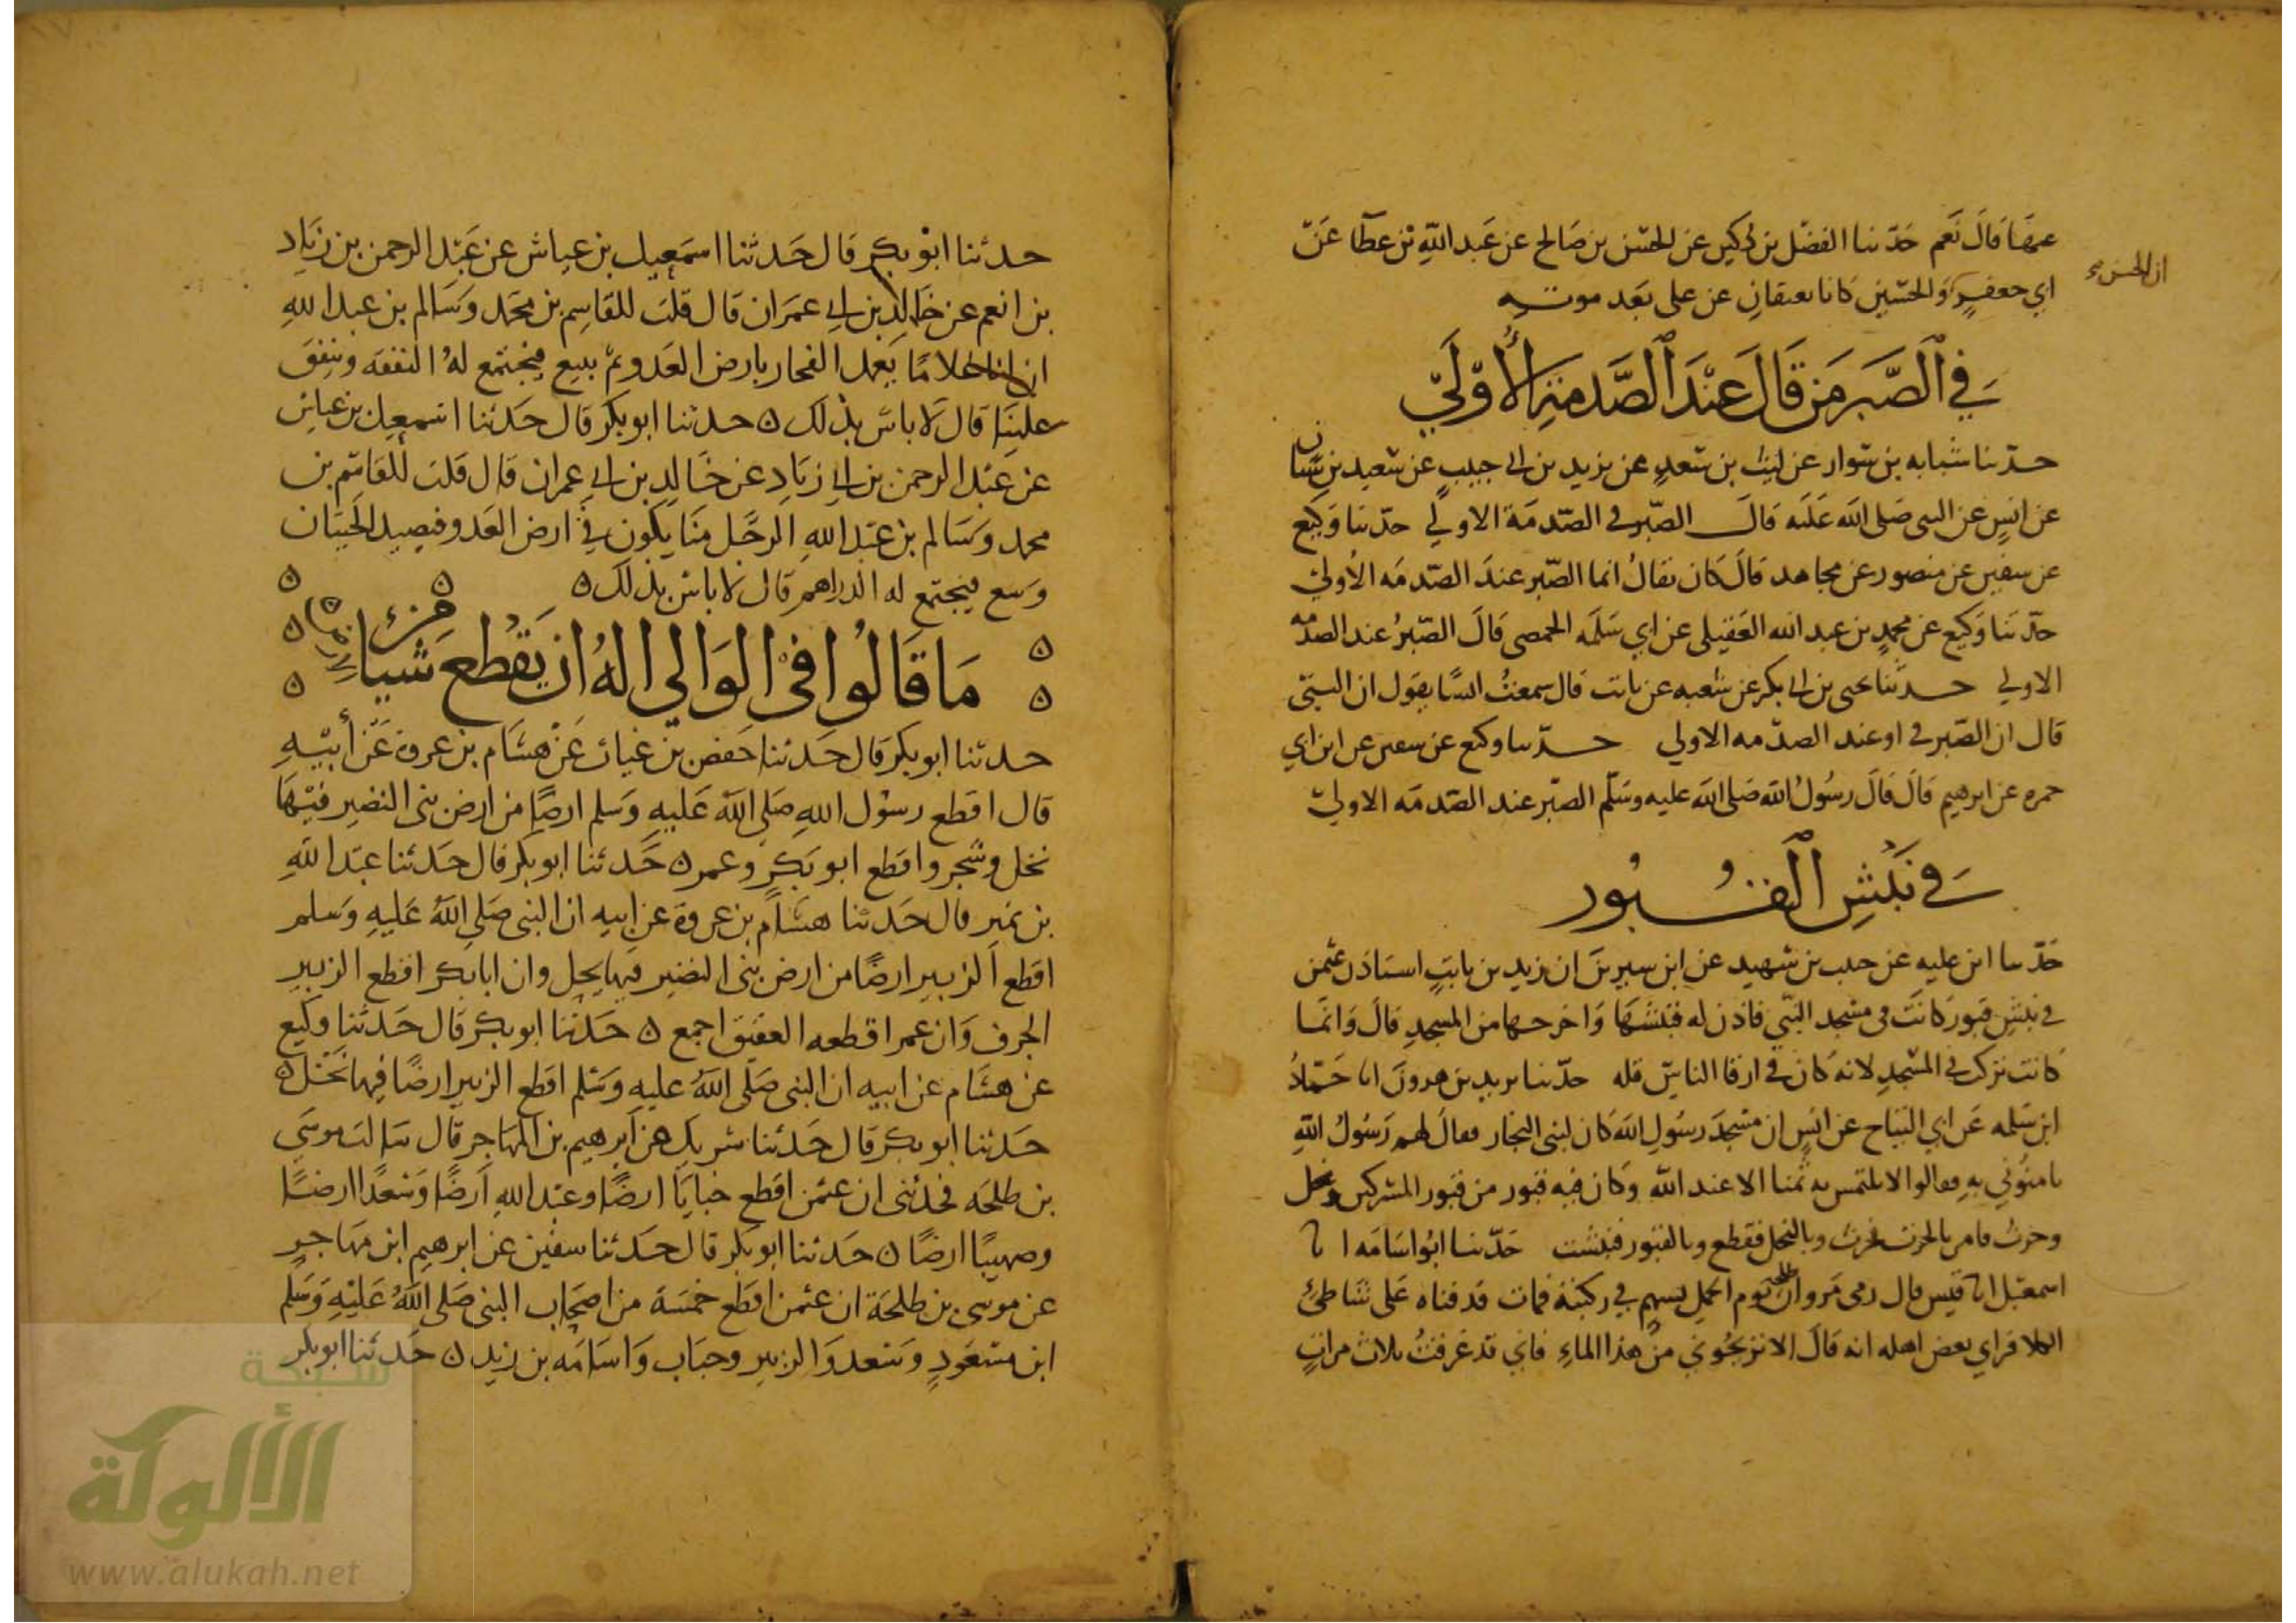 عنها قال نعم حدثنا الفضل بن دكين عن الحسن بن صالح عن عبد الله بن عطا عن
ابي جعفر والحسين كانا يعتقان عن علي بعد موته
ان الحسن
في الصبر من قال عند الصدمة الأولى
حدثنا شبابه بن سوار عن ليث بن سعد عن يزيد بن ابي حبيب عن سعيد بن سنان
عن انس عن النبي صلى الله عليه قال الصبر في الصدمة الاولي حدثنا وكيع
عن سفين عن منصور عن مجاهد قال كان يقال انما الصبر عند الصدمه الأولى
حدثنا وكيع عن محمد بن عبد الله العقيلي عن ابي سلمه الحمصي قال الصبر عند الصدمه
الاولي حدثنا يحيى بن ابي بكر عن شعبه عن ثابت قال سمعت انسا يقول ان النبي
قال ان الصبر في او عند الصدمه الاولي حدثنا وكيع عن سفين عن ابن ابي
حمره عن ابرهيم قال قال رسول الله صلى الله عليه وسلم الصبر عند الصدمه الاولى
في نبش القبور
حدثنا ابن عليه عن حبيب بن شهيد عن ابن سيرين ان زيد بن ثابت استاذن عثمن
في نبش قبور كانت في مسجد النبي فاذن له فنبشها واخرجها من المسجد قال وانما
كانت تركت في المسجد لانه كان في ارقا الناس قله حدثنا يزيد بن هرون انا حماد
ابن سلمه عن ابي التياح عن انس ان مسجد رسول الله كان لبني النجار فقال لهم رسول الله
ثامنوني به فقالوا لا نلتمس به ثمنا الا عند الله وكان فيه قبور من قبور المشركين ونخل
وحرث فامر بالحرث فحرث وبالنخل فقطع وبالقبور فنبشت حدثنا ابو اسامه انا
اسمعيل انا قيس قال رمى مروان طلحة يوم الجمل بسهم في ركبته فمات فدفناه على شاطئ
الكلا فراي بعض اهله انه قال الا تريحوني من هذا الماء فاني قد غرقت ثلاث مرات
حدثنا ابو بكر قال حدثنا اسمعيل بن عياش عن عبد الرحمن بن زياد
بن انعم عن خالد بن ابي عمران قال قلت للقاسم بن محمد وسالم بن عبد الله
ان لنا غلاما يعمل الفخار بارض العدو ثم يبيع فيجتمع له النفقه وينفق
علينا قال لا باس بذلك ه حدثنا ابو بكر قال حدثنا اسمعيل بن عياش
عن عبد الرحمن بن ابي زياد عن خالد بن ابي عمران قال قلت للقاسم بن
محمد وسالم بن عبد الله الرجل منا يكون في ارض العدو فيصيد الحيتان
وسع فيجتمع له الدراهم قال لا باس بذلك ه
ما قالوا في الوالي اله ان يقطع شيا من
حدثنا ابو بكر قال حدثنا حفص بن غياث عن هشام بن عروة عن أبيه
قال اقطع رسول الله صلى الله عليه وسلم ارضا من ارض بني النضير فيها
نخل وشجر واقطع ابو بكر وعمر ه حدثنا ابو بكر قال حدثنا عبد الله
بن نمير قال حدثنا هشام بن عروة عن ابيه ان النبي صلى الله عليه وسلم
اقطع الزبير ارضا من ارض بني النضير فيها نخل وان ابا بكر اقطع الزبير
الجرف وان عمر اقطعه العقيق اجمع ه حدثنا ابو بكر قال حدثنا وكيع
عن هشام عن ابيه ان النبي صلى الله عليه وسلم اقطع الزبير ارضا فيها نخل ه
حدثنا ابو بكر قال حدثنا شريك عن ابرهيم بن المهاجر قال سالت موسى
بن طلحه فحدثني ان عثمن اقطع خبابا ارضا وعبد الله ارضا وسعدا ارضا
وصهيبا ارضا ه حدثنا ابو بكر قال حدثنا سفين عن ابرهيم ابن مهاجر
عن موسى بن طلحة ان عثمن اقطع خمسة من اصحاب النبي صلى الله عليه وسلم
ابن مسعود وسعد والزبير وخباب واسامه بن زيد ه حدثنا ابو بكر
شبكة
الألوكة
www.alukah.net